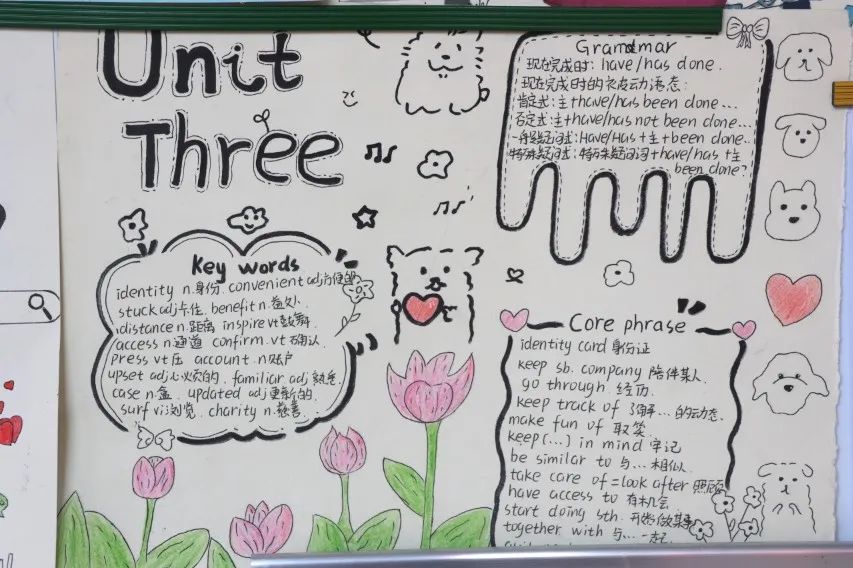 Unit
Three
Grammar
现在完成时: have/has done.
现在完成时的被动语态:
肯定式:主+have/has been done...
否定式:主+have/has not been done...
一般疑问式:Have/Has+主+been done..
特殊疑问式:特殊疑问词+have/has+主
been done?
Key words
identity n.身份. convenient adj方便的
stuck adj卡住. benefit n.益处.
distance n.距离 inspire vt鼓舞
access n.通道 confirm.vt确认
press vt压 account n.账户
upset adj心烦的. familiar adj熟悉
case n.盒. updated adj更新的.
surf vi浏览. charity n.慈善.
Core phrase
identity card 身份证
keep sb. company 陪伴某人
go through. 经历.
keep track of 了解...的动态.
make fun of 取笑.
keep(...) in mind 牢记
be similar to 与...相似.
take care of=look after 照顾
have access to 有机会
start doing sth. 开始做某事
together with 与...一起.